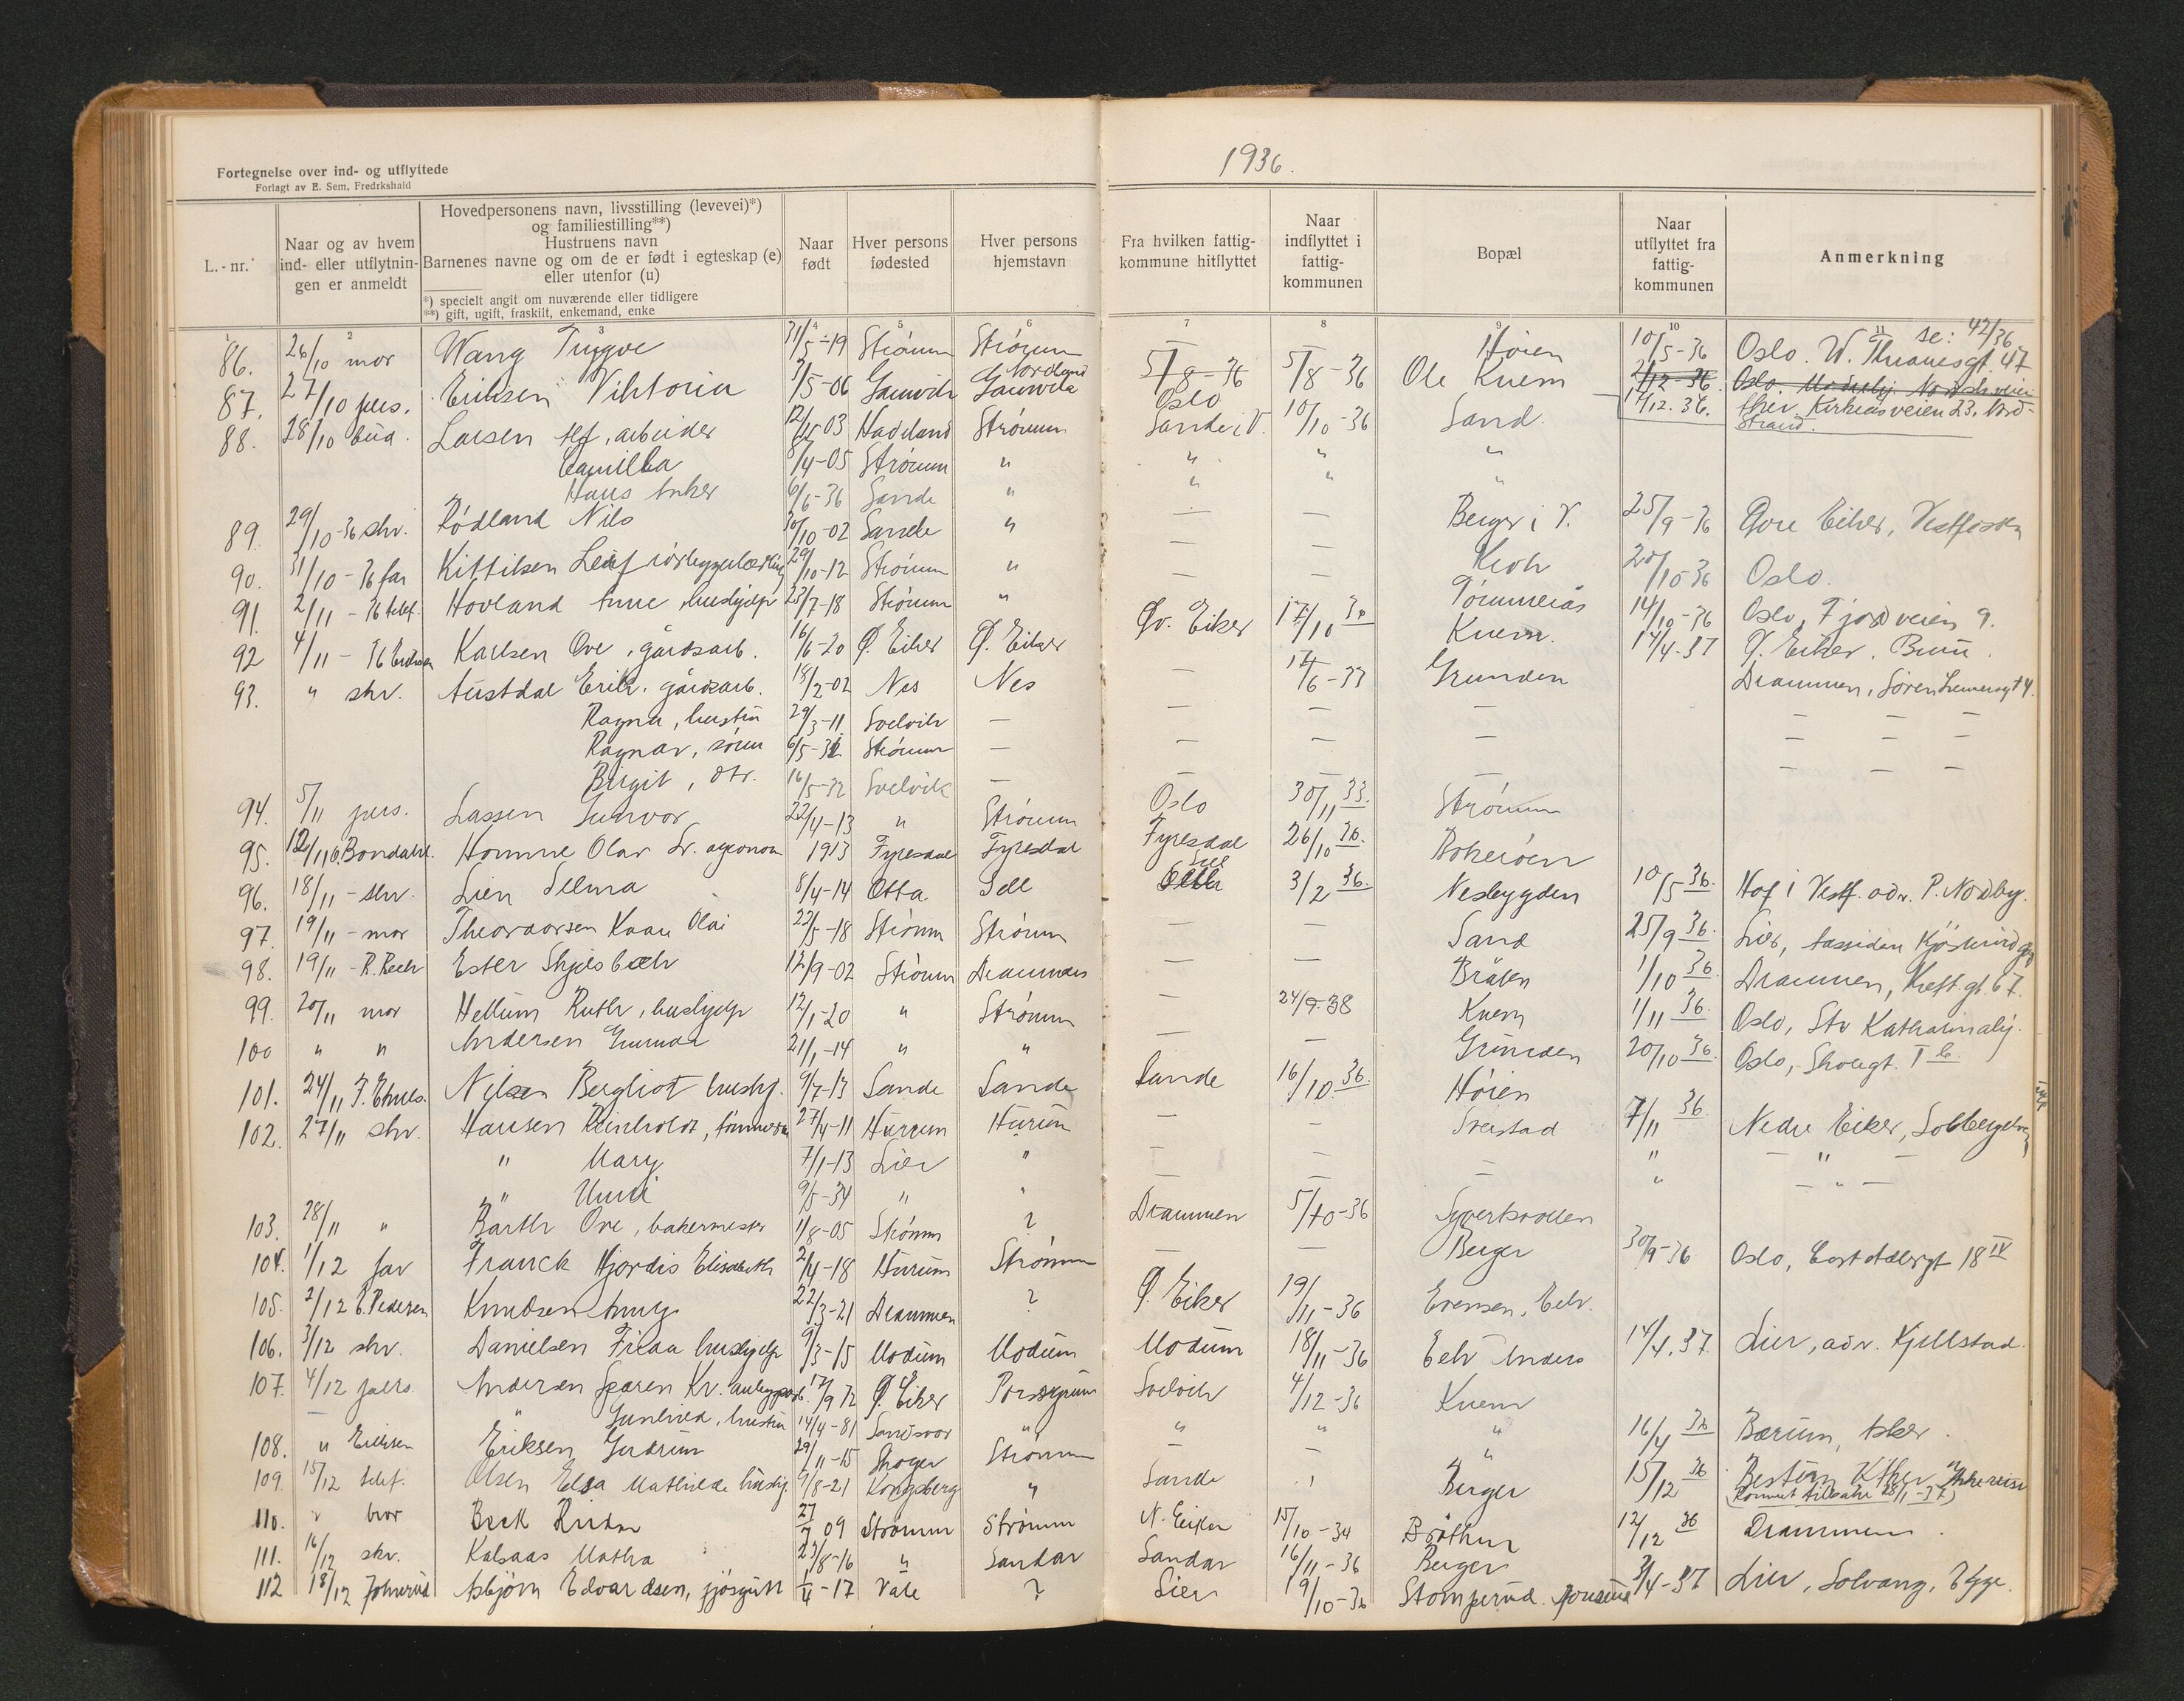 Fortegnelse over ind- og utflyttede
Forlagt av E. Sem, Fredrkshald
1936.
L.-nr.
Naar og av hvem ind- eller utflytnin-gen er anmeldt
Hovedpersonens navn, livsstilling (levevei)*) og familiestilling**)
Hustruens navn
Barnenes navne og om de er født i egteskap (e) eller utenfor (u)
*) specielt angit om nuværende eller tidligere
**) gift, ugift, fraskilt, enkemand, enke
Naar født
Hver persons fødested
Hver persons hjemstavn
Fra hvilken fattig-kommune hitflyttet
Naar indflyttet i fattig-kommunen
Bopæl
Naar utflyttet fra fattig-kommunen
Anmerkning
1 2 3 4 5 6 7 8 9 10 11
86. 26/10 mor Wang Trygve 31/5-19 Strømm Strømm Høien 10/5-36 Oslo. W. Thranesgt. 47 se: 42/36
87. 27/10 pers. Eriksen Viktoria 3/5-06 5/8-36 5/8-36 Ole Knem 2/12-36 Oslo
Nordland Oslo 14/12.36. Kirkeåsveien 23, Nord-
strand.
88. 28/10 bud. Larsen Alf, arbeider 12/5-03 Hadeland Strømm Sande i V. 10/10-36 Sand
Camilla 8/4-05 Strømm " " " "
Hans Anker 6/6-36 Sande " " " "
89. 29/10-36 skr. Rødland Nils 30/10-02 Sande " — — Berger i V. 25/9-36 Øvre Eiker, Vestfossen
90. 31/10-36 far Kittilsen Leif 29/10-12 Strømm " — — Krok 20/10-36 Oslo.
91. 2/11-36 telef. Hovland Anne, hushjelp 23/7-18 Strømm " — — Tømmerås 14/10-36 Oslo, Fjordveien 9.
92 4/11-36 Eriksen Karlsen Ove, gårdsarb. 16/6-20 Ø. Eiker Ø. Eiker Øv. Eiker 17/10 36 Knem. 14/4-37 Ø. Eiker.
93. " skr. Austdal Erik, gårdsarb. 18/2-02 Nes Nes — 17/6-33 Grunden Drammen, Søren
Ragna, hustru 29/3-11 Svelvik — — — — — — —
Ragnar, sønn 6/5-31 Strømm — — — — — — —
Birgit, dtr. 16/5-32 Svelvik — — — — — — —
94. 5/11 pers. Lassen Gunvor 22/4-13 " Strømm Oslo 30/11 33. Strømm
95. 12/11 Bondahl. Homme Olav Sv. agronom 1913 Fyresdal Fyresdal Fyresdal 26/10 36. Bokerøen
96. 18/11-skr. Lien Selma 8/4-14 Otta Sell Sel 3/2 36. Nesbygden 10/5 36. Hof i Vestf. adr. P. Nordby.
97. 19/11-mor Theorvorsen Kaare Olai 22/5-18 Strømm Strømm — — Sand 25/9 36. Lier, Tassiden
98. 19/11-R. Rech Ester Skjelsbæk 12/9-02 Strømm Drammens — — Bråten 1/10 36. Drammen, Kreft.gt. 67.
99. 20/11 mor Hellum Ruth, hushjelp 12/1-20 " Strømm — 24/9-38 Knem 1/11 36. Oslo, Str Katharinahj.
100 " " Andersen Gunda 21/1-14 " " — — Grunden 20/10 36. Oslo, Skovgt. 1 b.
101. 24/11 Nilsen Bergliot hushj. 9/7-13 Sande Sande Sande 16/10 36. Høien
102. 27/11 skr. Hansen Reinholdt, 27/4-11 Hurum Hurum — — Sverstad 7/11 36 Nedre Eiker, Solbergelven
" Mary 7/1-13 Lier " — — — " — " —
" Unni 9/5-34 " " — — — " — " —
103. 28/11 " Barth Ove, bakermester 1/8-05 Strømm ? Drammen 5/10-36
104. 1/12 far Franck Hjordis Elisabeth 2/4-18 Hurum Strømm — — Berger 30/9-36 Oslo, 18 IV
105. 2/12 E. Pedersen Knudsen 22/3-21 Drammen ? Ø. Eiker 19/11-36 Evensen, Eek.
106. 3/12 skr. Danielsen Frida hushjelp 9/3-15 Modum Modum Modum 18/11-36 Eek Anders 14/4.37. Lier, adr. Kjellstad.
107. 4/12 pers. Andersen Søren Kr. 17/9 72 Ø. Eiker Porsgrunn Svelvik 4/12-36 Knem
" Gunhild, hustru 14/4-81 " " " "
108. " Eriksen Eriksen Gudrun 29/11-15 Skoger Strømm — — " 16/4 36 Bærum, Asker.
109. 15/12 telef. Olsen Elsa Mathilde hushj. 9/8-21 Kongsberg " Sande " Berger 15/12 36
(kommet tilbake 28/1-37)
110. " bror Beck 27/7 09 Strømm Strømm N. Eiker 15/10-34 Bråthen 12/12 36 Drammen.
111. 16/12 skr. Kalsaas Martha 23/8-16 " Sandar Sandar 16/11-36 Berger
112 18/12 Johnsrud Asbjørn Edvardsen, fjøsgutt 1/4-17 Våle ? Lier 19/10-36 Stomperud. 3/4-37 Lier, Solvang, Egge.